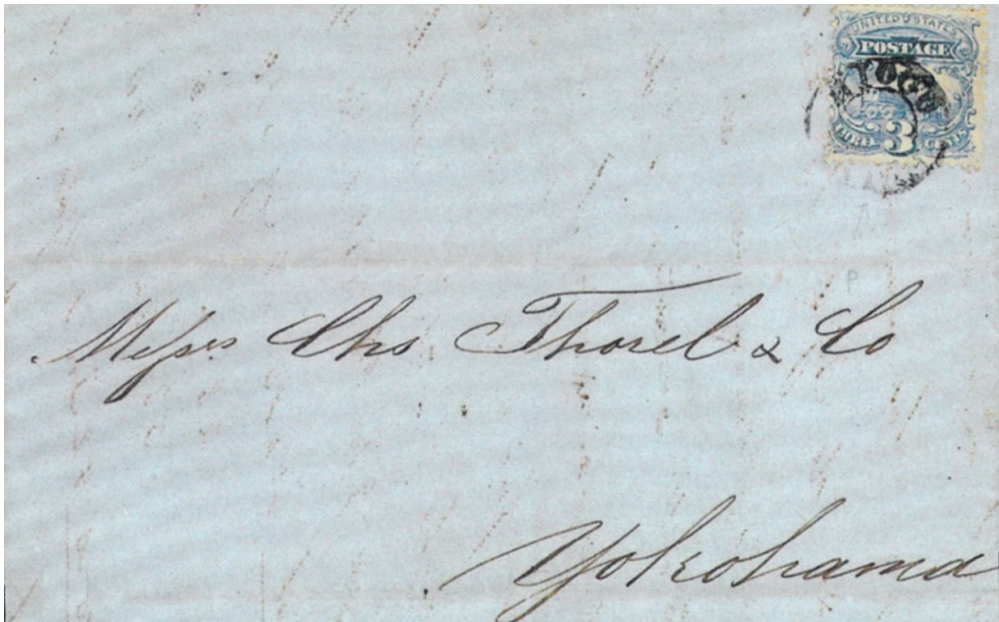 UNITED STATES
POSTAGE
HIOGO
3
P
Messrs Chs Thorel & Co
Yokohama